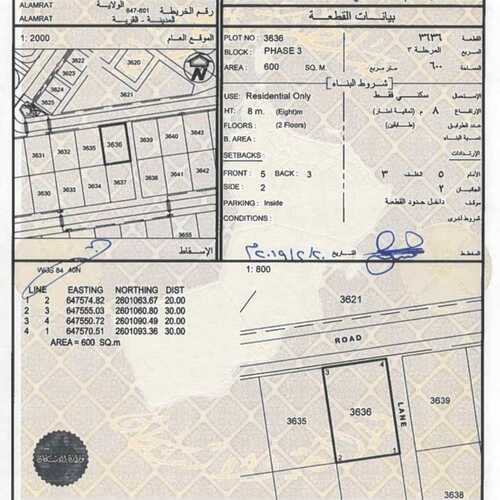 ALAMRAT
الولاية
ALAMRAT
647-601
رقم الخريطة
المدينة - القرية
1: 2000
الموقع العام
3620
3631
3632
3634
3636
3639
3640
3643
3633
3635
3637
3638
3641
3642
الإسقاط
WGS 84 40N
بيانات القطعة
PLOT NO : 3636
٣٦٣٦
القطعة
BLOCK : PHASE 3
المرحلة ٣
المربع
AREA : 600 SQ. M
متر مربع
٦٠٠
المساحة
شروط البناء
USE: Residential Only
سكني فقط
الإستعمال
HT: 8 m. (Eight)m
٨ م (ثمانية أمتار)
الإرتفاع
FLOORS : (2 Floors)
(طابقين)
عدد الطوابق
B. AREA :
نسبة البناء
SETBACKS :
الإرتدادات
FRONT : 5 BACK : 3
٣
الخلف
٥
الأمام
SIDE : 2
٢
الجانبين
PARKING : Inside
داخل حدود القطعة
موقف
CONDITIONS :
شروط أخرى
المخطط
التاريخ
٢٠١٩/٢/٢٠م
LINE EASTING NORTHING DIST
1 2 647574.82 2601063.67 20.00
2 3 647555.03 2601060.80 30.00
3 4 647550.72 2601090.49 20.00
4 1 647570.51 2601093.36 30.00
AREA = 600 SQ.m
1 : 800
3621
ROAD
3 4
3635
3636
LANE
3639
2 1
وزارة الإسكان